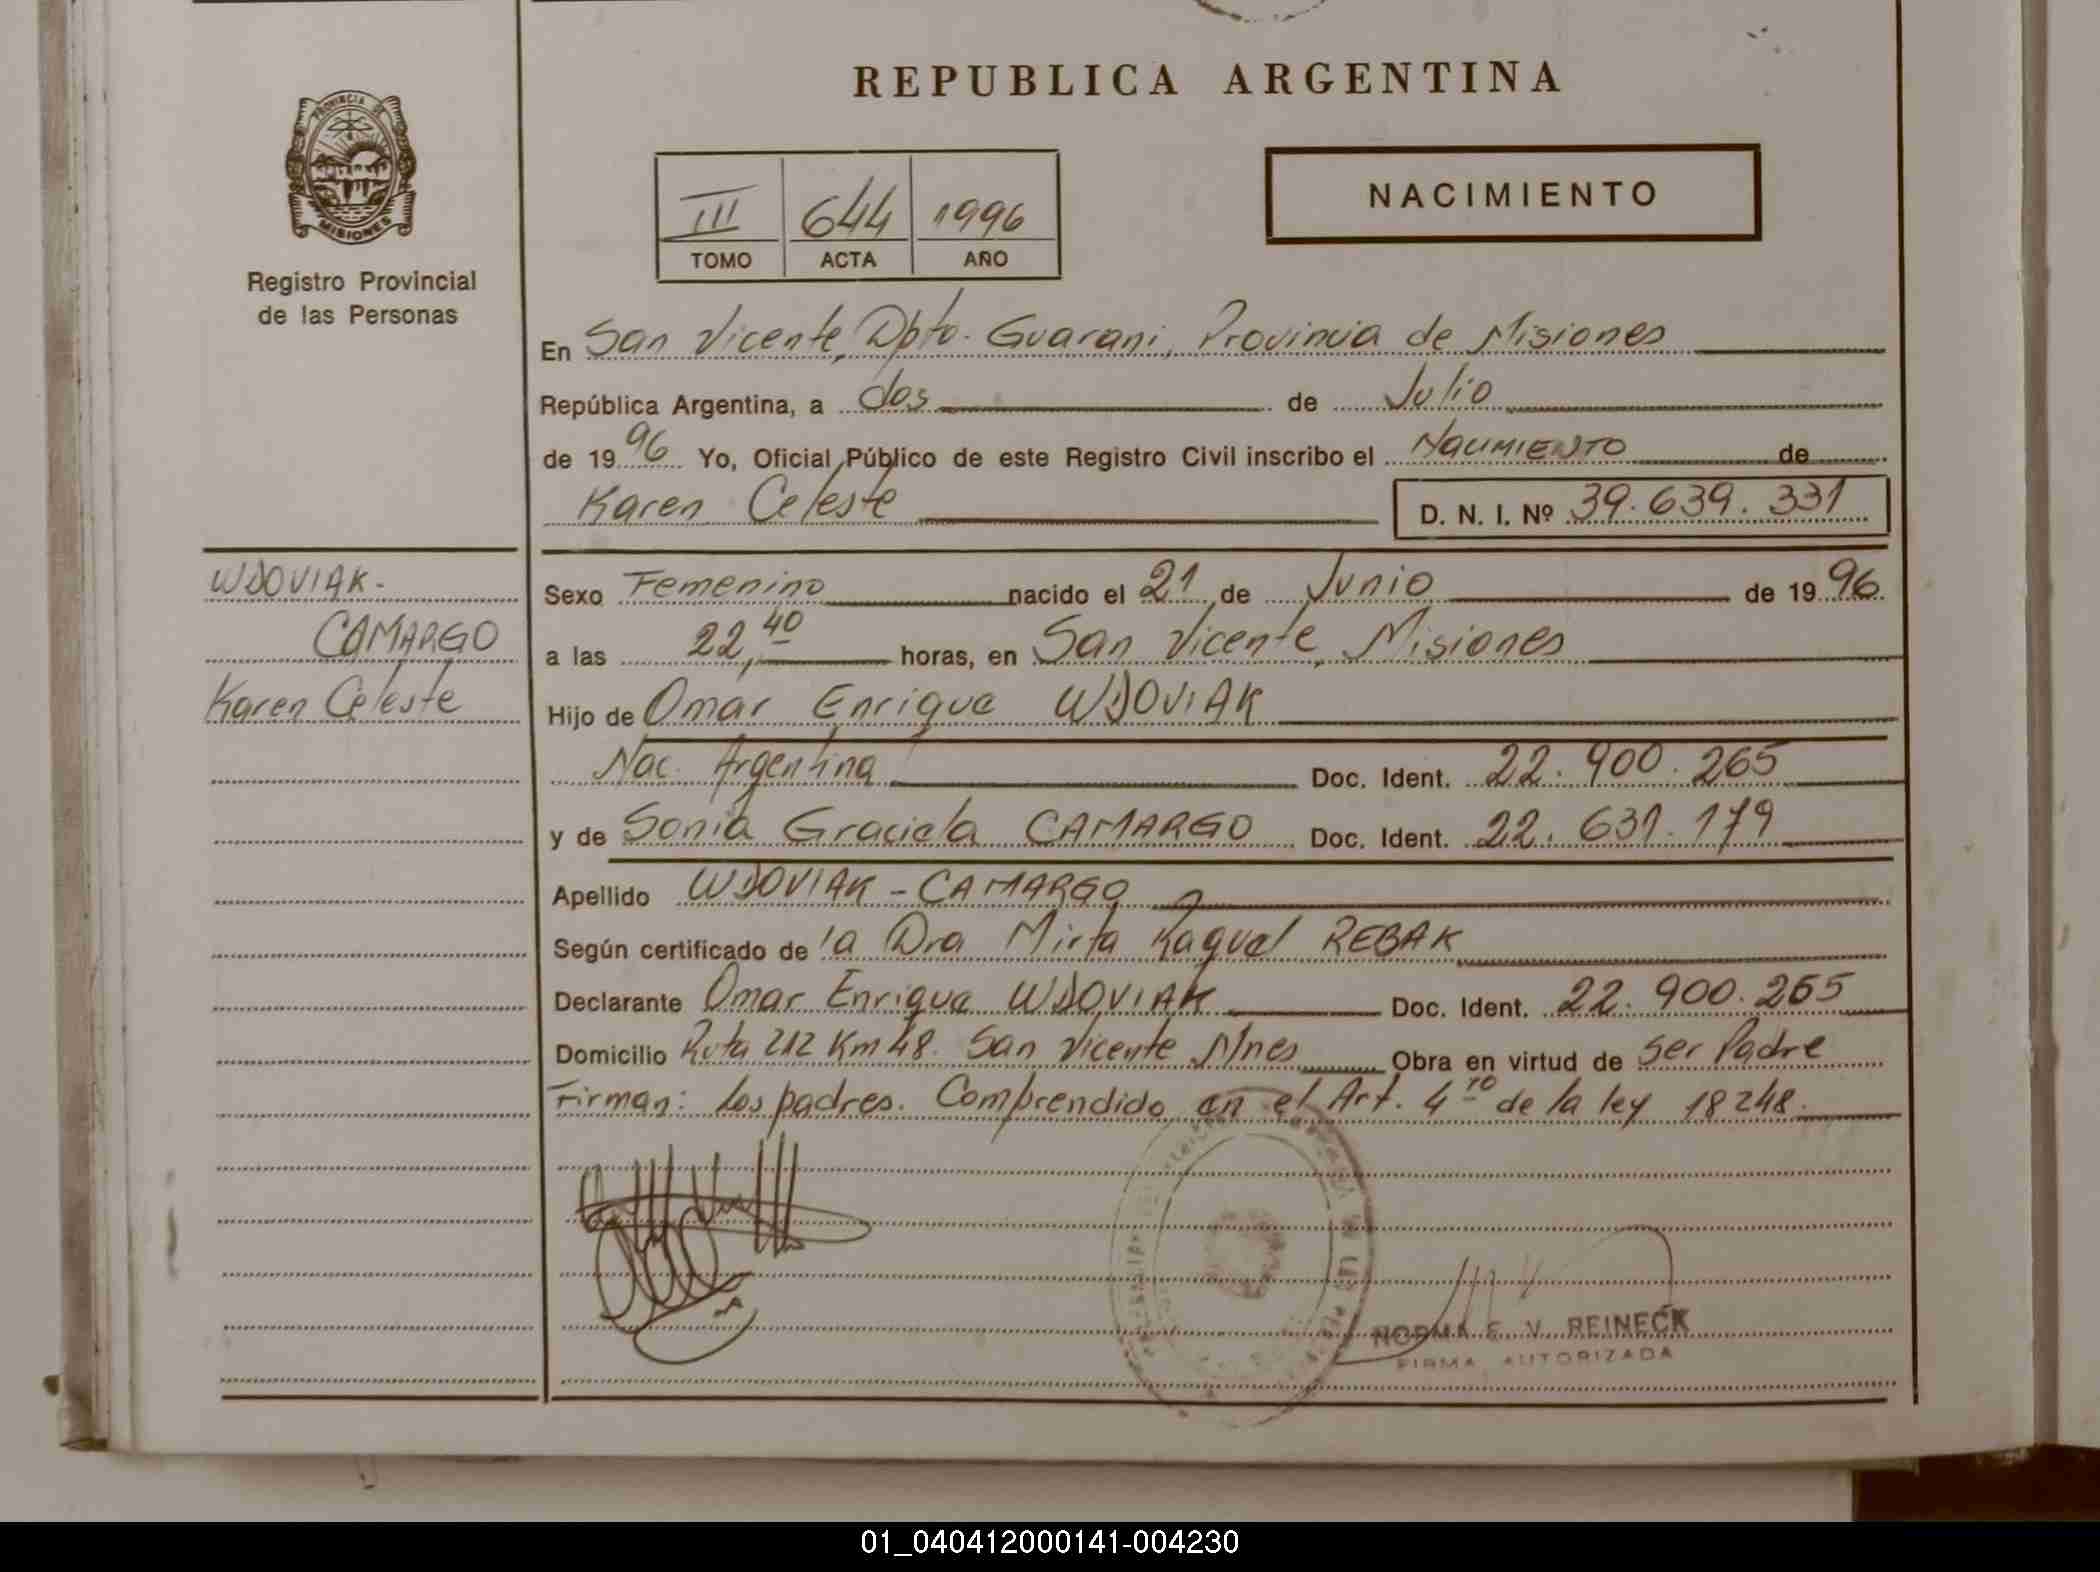 REPUBLICA ARGENTINA
PROVINCIA DE
MISIONES
Registro Provincial
de las Personas
III 644 1996
TOMO ACTA AÑO
NACIMIENTO
En San Vicente, Dpto. Guarani, Provincia de Misiones
República Argentina, a dos de Julio
de 1996 Yo, Oficial Público de este Registro Civil inscribo el NACIMIENTO de
Karen Celeste D. N. I. Nº 39.639.331
WDOVIAK-
CAMARGO
Karen Celeste
Sexo Femenino nacido el 21 de Junio de 1996
a las 22,40 horas, en San Vicente, Misiones
Hijo de Omar Enrique WDOVIAK
Nac. Argentina Doc. Ident. 22.900.265
y de Sonia Graciela CAMARGO Doc. Ident. 22.631.179
Apellido WDOVIAK-CAMARGO
Según certificado de la Dra Mirta Raquel REBAK
Declarante Omar Enrique WDOVIAK Doc. Ident. 22.900.265
Domicilio Ruta 212 Km 48. San Vicente Mnes Obra en virtud de ser Padre
Firman: Los padres. Comprendido en el Art. 4to de la ley 18248.
NORMA E. V. REINECK
FIRMA AUTORIZADA
01_040412000141-004230